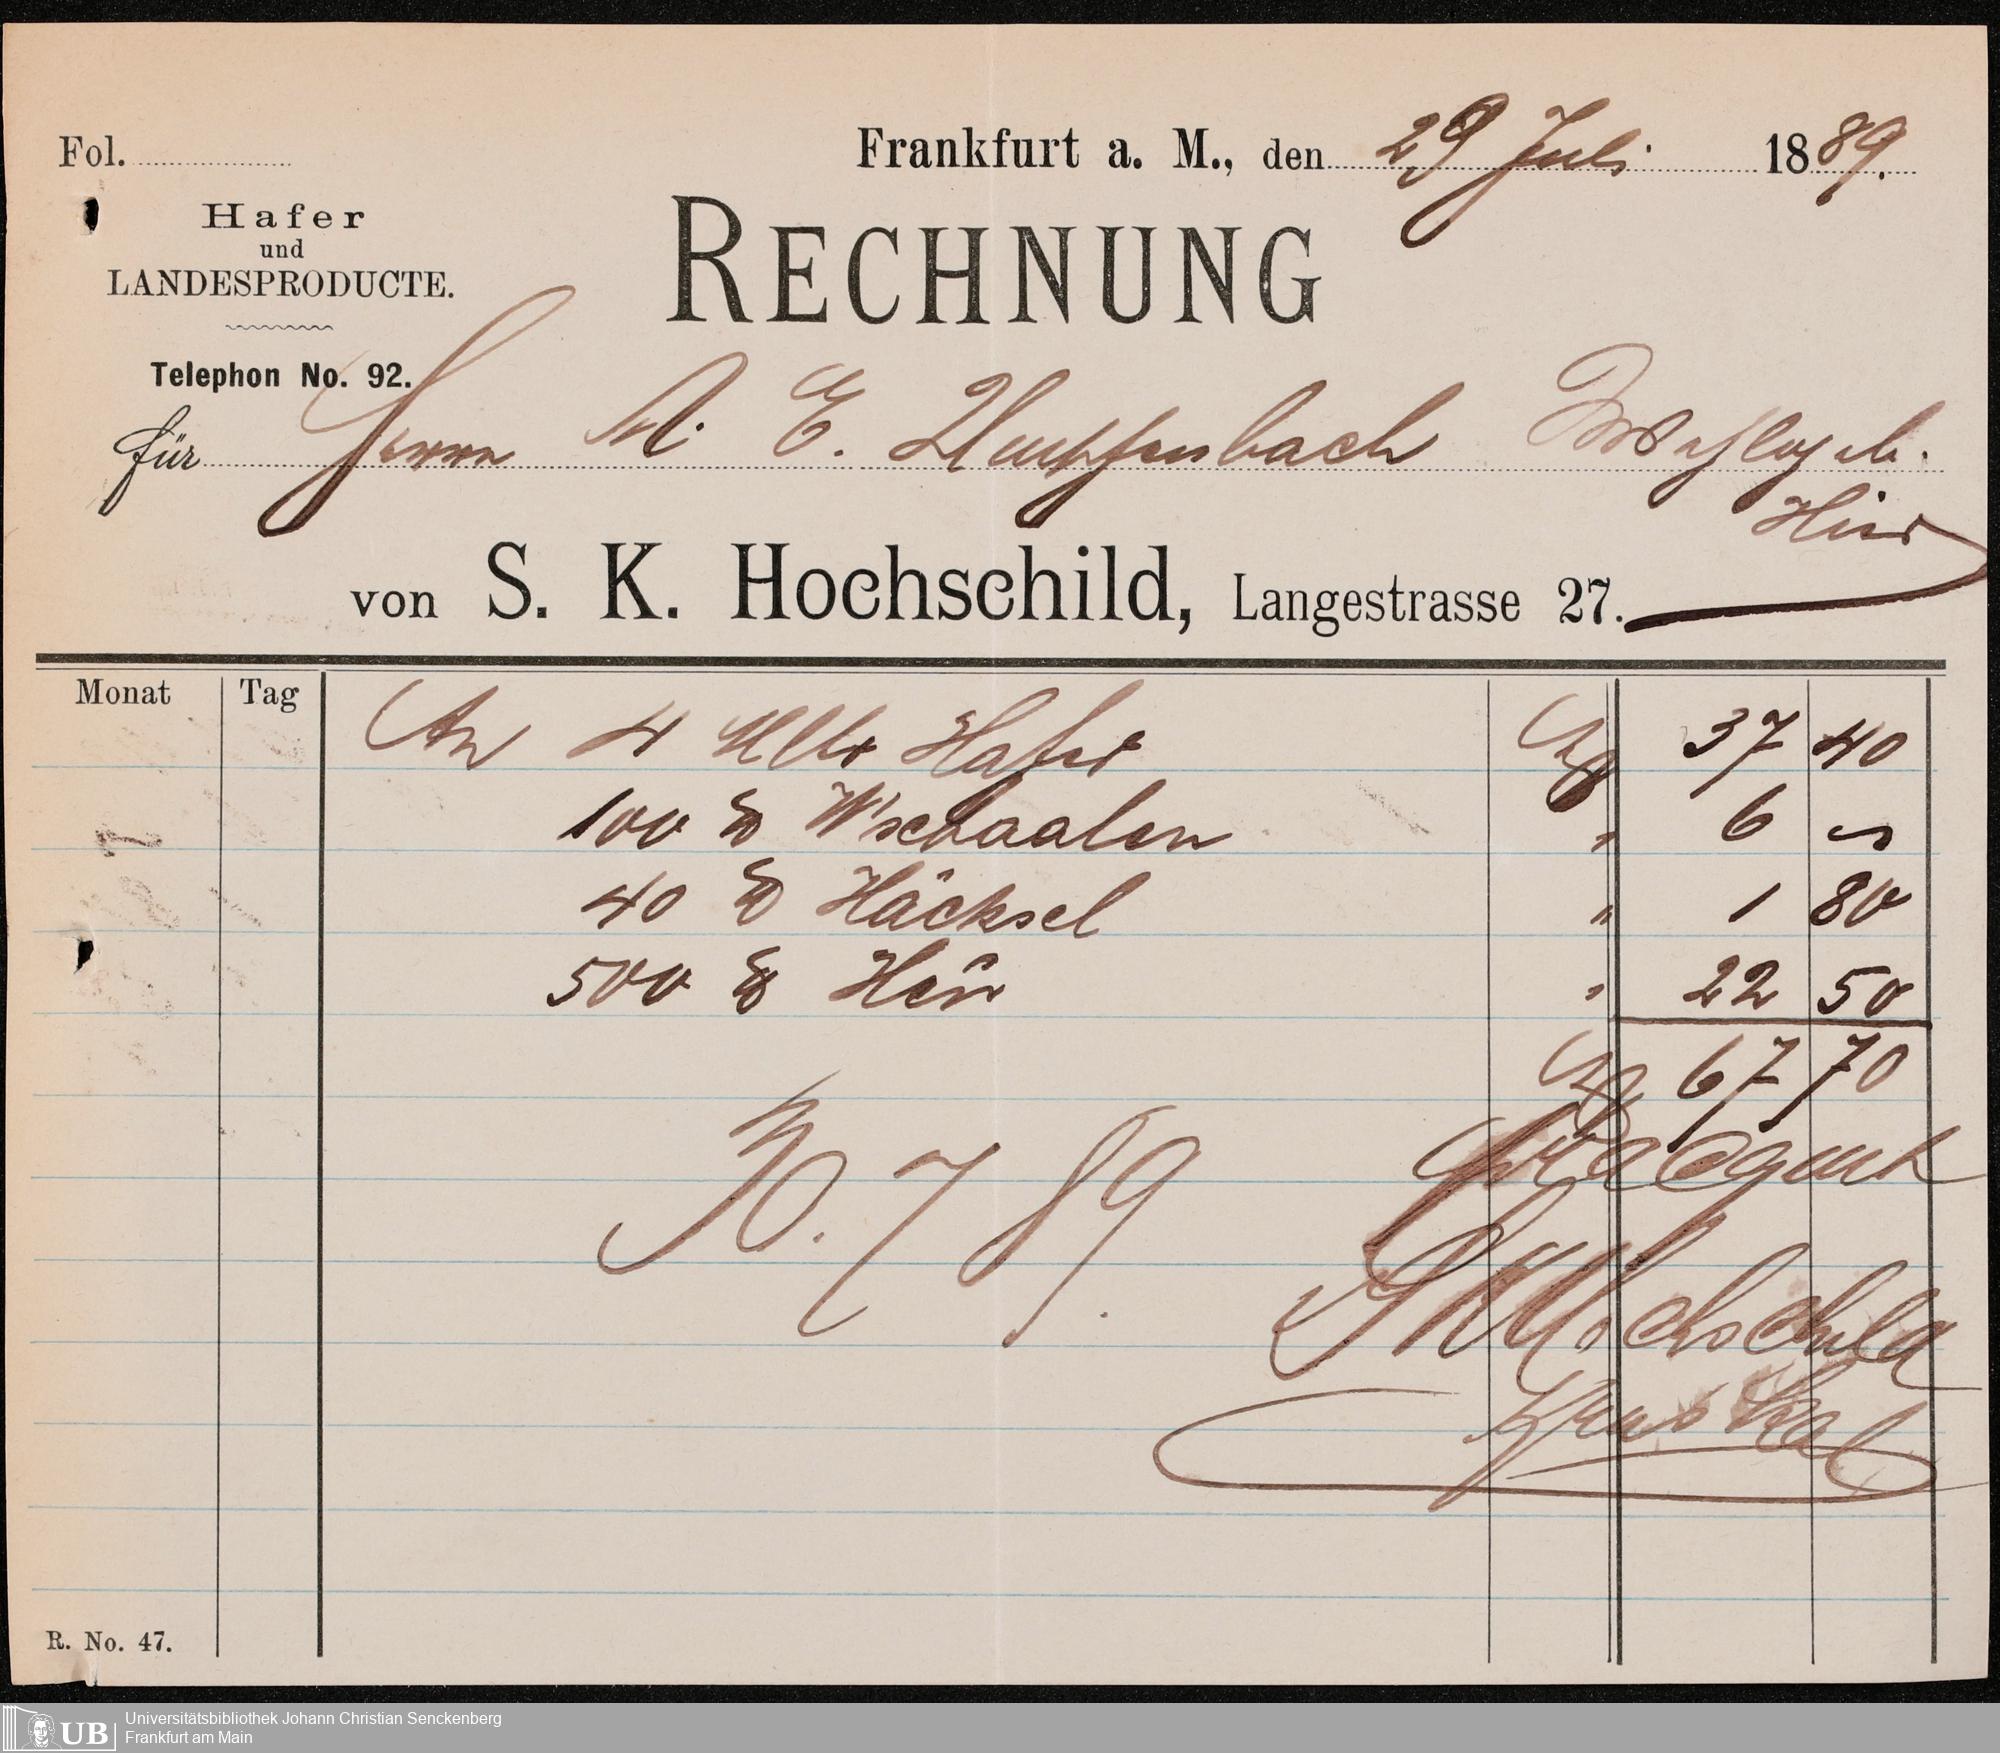 Fol.
Frankfurt a. M., den 29 Juli 1889.
Hafer
und
LANDESPRODUCTE.
RECHNUNG
Telephon No. 92.
für Herrn A. E. Umpfenbach
Hier
von S. K. Hochschild, Langestrasse 27.
Monat Tag
An 4 Mltr Hafer M 37 40
100 ℔ W'schaalen " 6 ~
40 ℔ Häcksel " 1 80
500 ℔ Heu " 22 50
M 67 70
30. 7 89.
SKHochschild
R. No. 47.
UB
Universitätsbibliothek Johann Christian Senckenberg
Frankfurt am Main